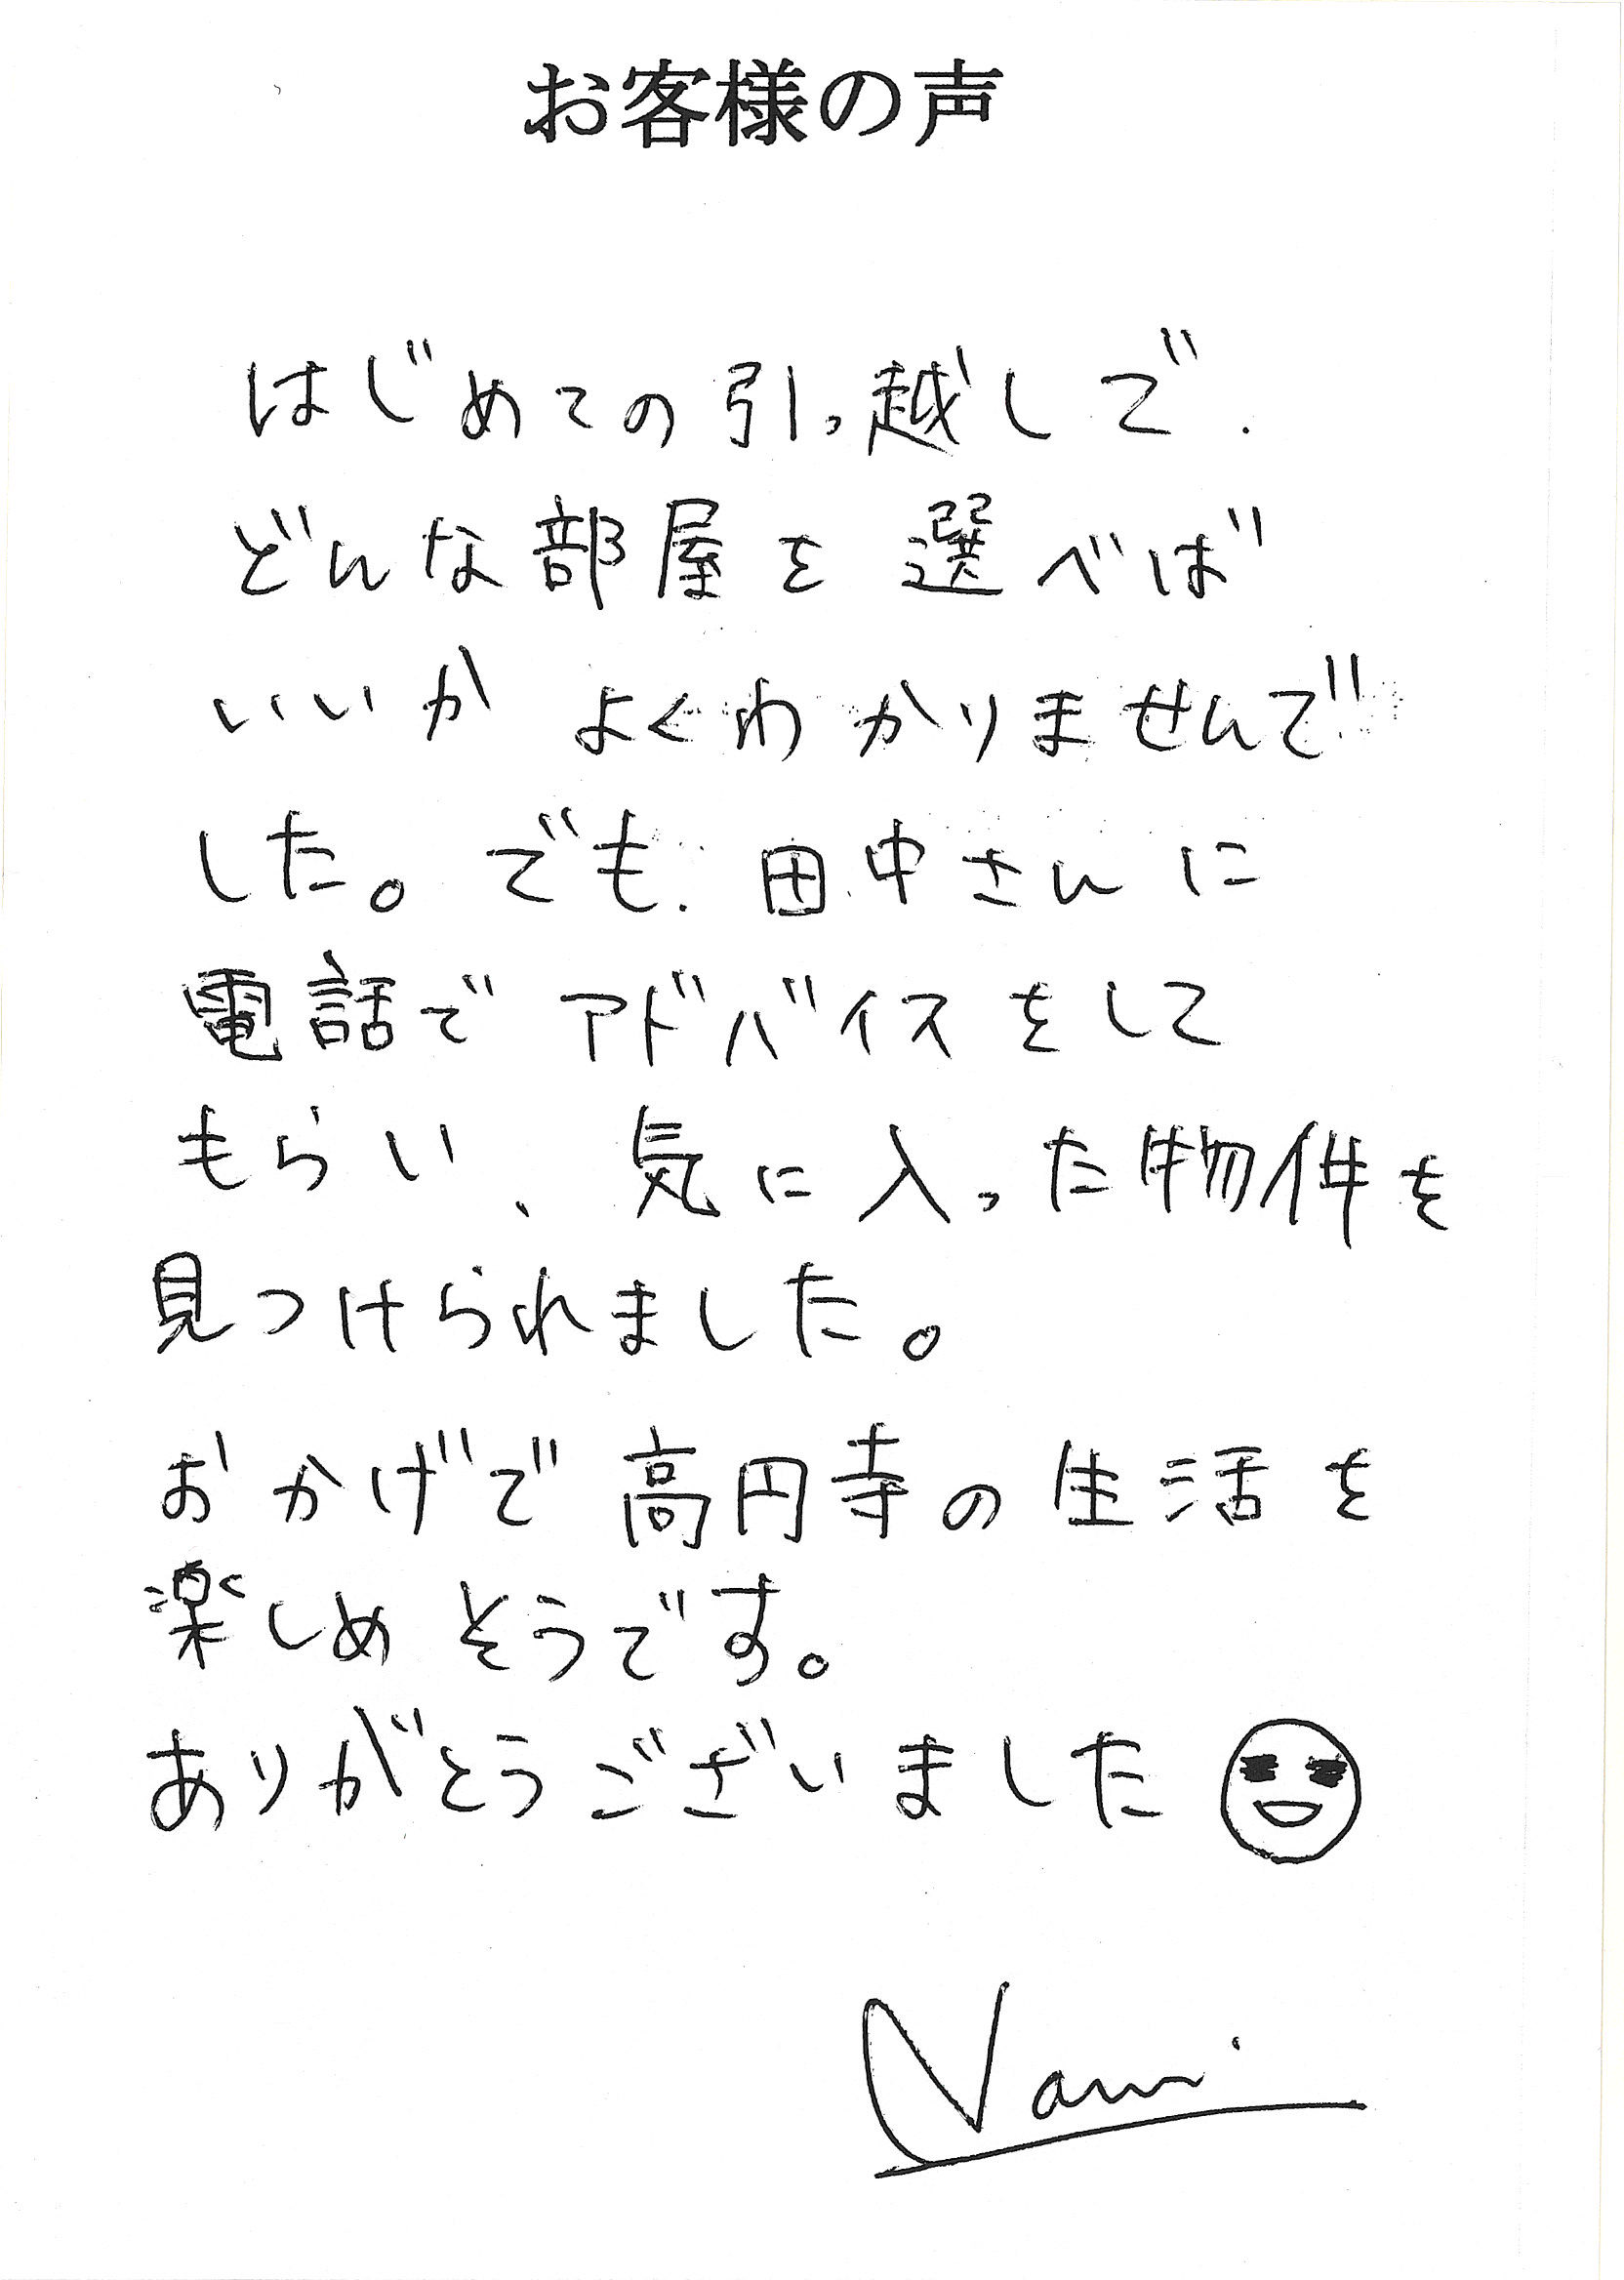 お客様の声
はじめての引っ越しで、
どんな部屋を選べば
いいか よくわかりませんで
した。でも、田中さんに
電話で アドバイスをして
もらい、気に入った物件を
見つけられました。
おかげで高円寺の生活を
楽しめそうです。
ありがとうございました
Nami